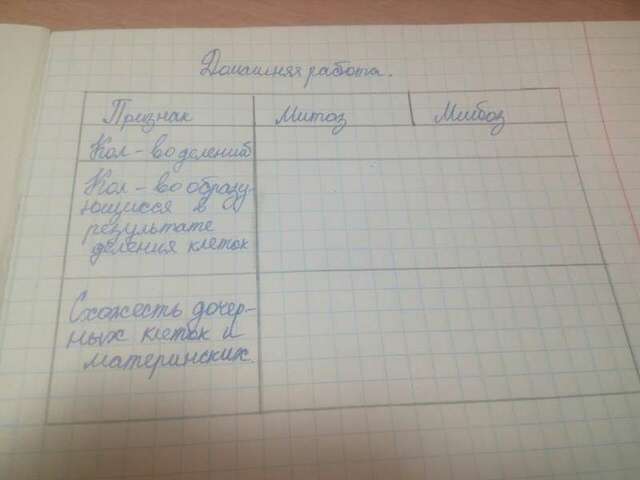 Домашняя работа.
Признак Митоз Мийоз
Кол-во делений
Кол-во образу-
ющихся в
результате
деления клеток
Схожесть дочер-
ных клеток и
материнских.